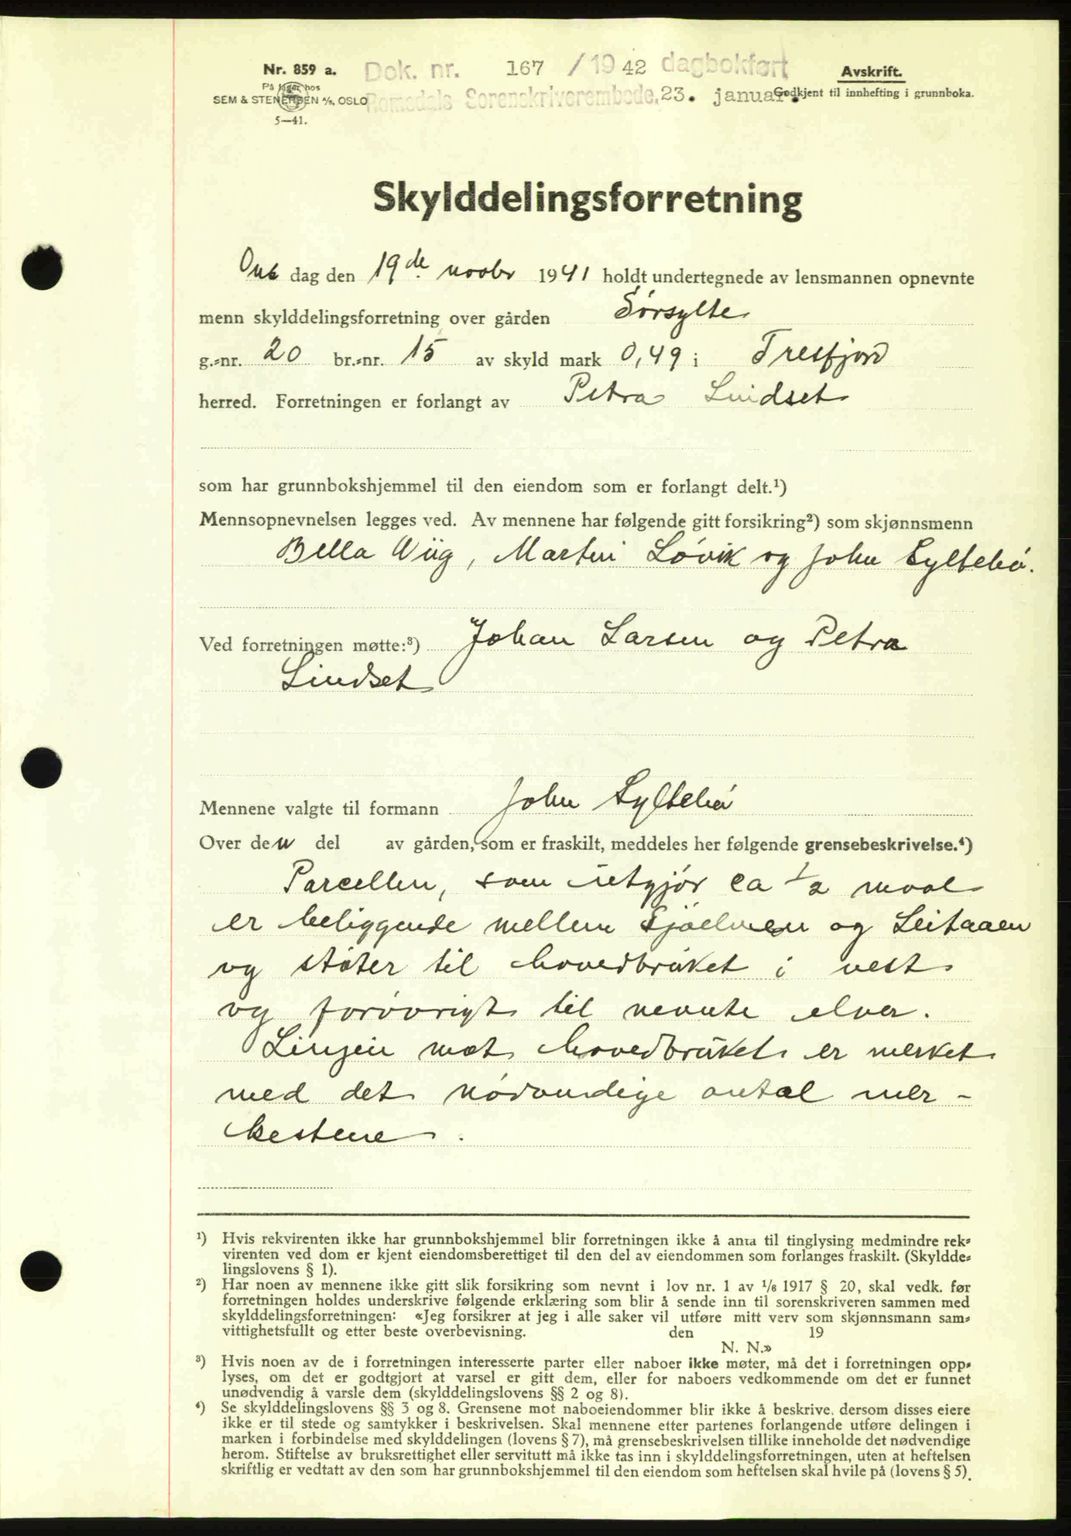 Nr. 859 a.
På lager hos
SEM & STENERSEN A/S, OSLO
5—41.
Dok. nr. 167 / 1942 dagbokført
Romsdals Sorenskriverembede, 23. januar.
Avskrift.
Godkjent til innhefting i grunnboka.
Skylddelingsforretning
Ons dag den 19de novbr 1941 holdt undertegnede av lensmannen opnevnte
menn skylddelingsforretning over gården Sørsylte
g.-nr. 20 br.-nr. 15 av skyld mark 0,49 i Tresfjord
herred. Forretningen er forlangt av Petra Lindset
som har grunnbokshjemmel til den eiendom som er forlangt delt.¹)
Mennsopnevnelsen legges ved. Av mennene har følgende gitt forsikring²) som skjønnsmenn
Bella Wiig, Martin Løvik og John Syltebø.
Ved forretningen møtte:³) Johan Larsen og Petra
Lindset
Mennene valgte til formann John Syltebø
Over den del av gården, som er fraskilt, meddeles her følgende grensebeskrivelse.⁴)
Parcellen, som utgjør ca ½ maal
er beliggende mellem Sjøelven og Leitaaen
og støter til hovedbruket i vest
og forøvrigt til nevnte elver.
Linjen mot hovedbruket er merket
med det nødvendige antal mer-
kestene.
¹) Hvis rekvirenten ikke har grunnbokshjemmel blir forretningen ikke å anta til tinglysing medmindre rek-
virenten ved dom er kjent eiendomsberettiget til den del av eiendommen som forlanges fraskilt. (Skyldde-
lingslovens § 1).
²) Har noen av mennene ikke gitt slik forsikring som nevnt i lov nr. 1 av 1/6 1917 § 20, skal vedk. før
forretningen holdes underskrive følgende erklæring som blir å sende inn til sorenskriveren sammen med
skylddelingsforretningen: «Jeg forsikrer at jeg i alle saker vil utføre mitt verv som skjønnsmann sam-
vittighetsfullt og etter beste overbevisning. den 19
N. N.»
³) Hvis noen av de i forretningen interesserte parter eller naboer ikke møter, må det i forretningen opp-
lyses, om det er godtgjort at varsel er gitt dem, eller for naboers vedkommende om det er funnet
unødvendig å varsle dem (skylddelingslovens §§ 2 og 8).
⁴) Se skylddelingslovens §§ 3 og 8. Grensene mot naboeiendommer blir ikke å beskrive, dersom disses eiere
ikke er til stede og samtykker i beskrivelsen. Skal mennene etter partenes forlangende utføre delingen i
marken i forbindelse med skylddelingen (lovens § 7), må grensebeskrivelsen tillike inneholde det nødvendige
herom. Stiftelse av bruksrettighet eller servitutt må ikke tas inn i skylddelingsforretningen, uten at heftelsen
skriftlig er vedtatt av den som har grunnbokshjemmel til den eiendom som heftelsen skal hvile på (lovens § 5).